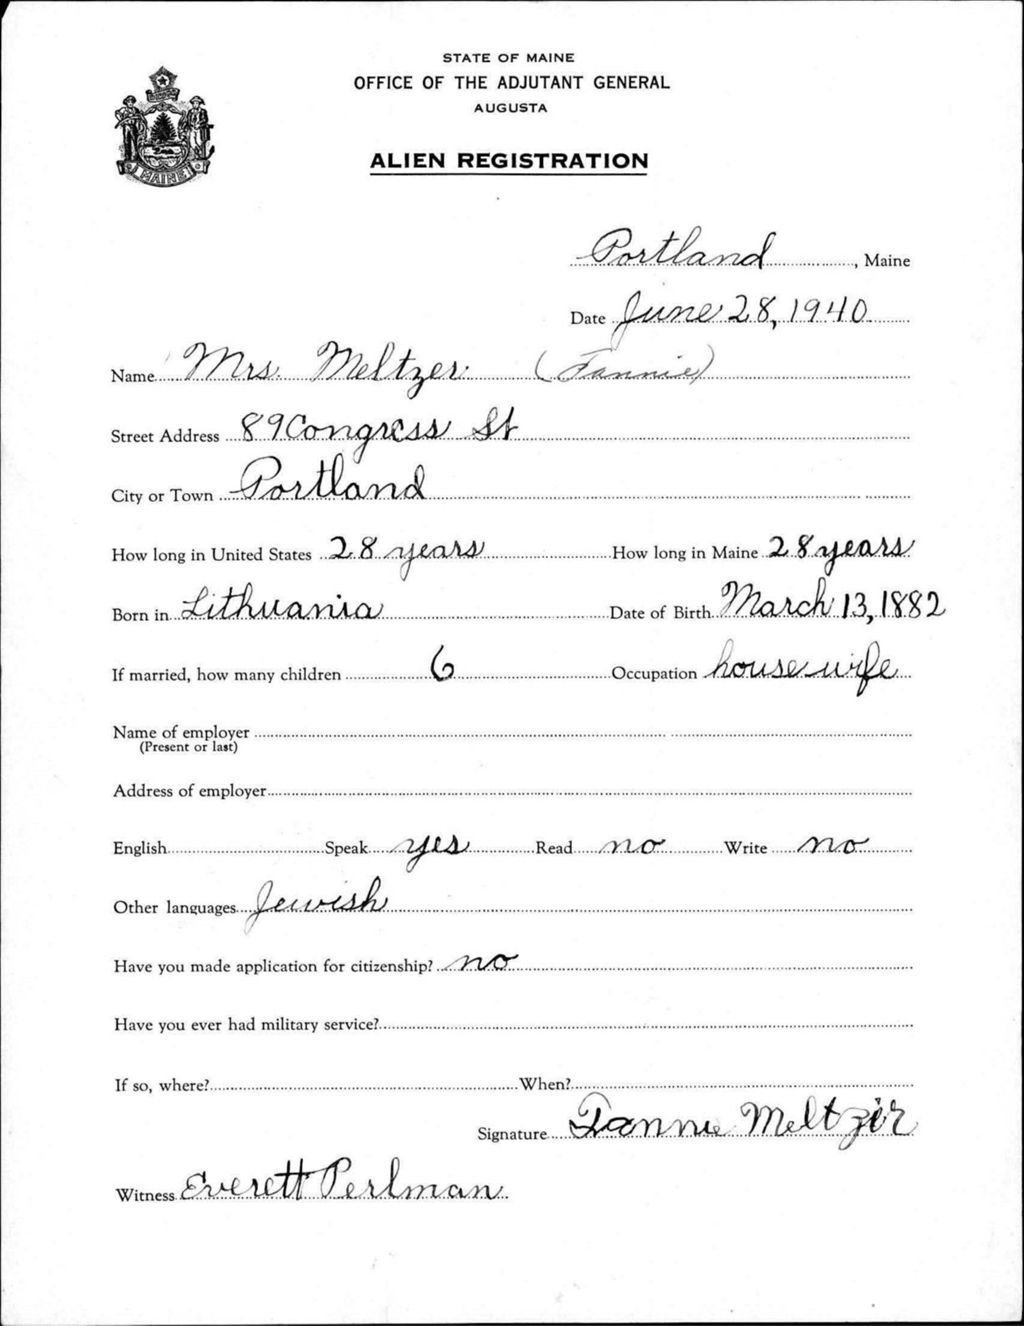 STATE OF MAINE
OFFICE OF THE ADJUTANT GENERAL
AUGUSTA
ALIEN REGISTRATION
MAINE
Portland, Maine
Date June 28, 1940
Name Mrs. Meltzer (Fannie)
Street Address 89 Congress St
City or Town Portland
How long in United States 28 years How long in Maine 28 years
Born in Lithuania Date of Birth March 13, 1882
If married, how many children 6 Occupation house wife
Name of employer
(Present or last)
Address of employer
English Speak yes Read no Write no
Other languages Jewish
Have you made application for citizenship? no
Have you ever had military service?
If so, where? When?
Signature Fannie Meltzer
Witness Everett Perlman